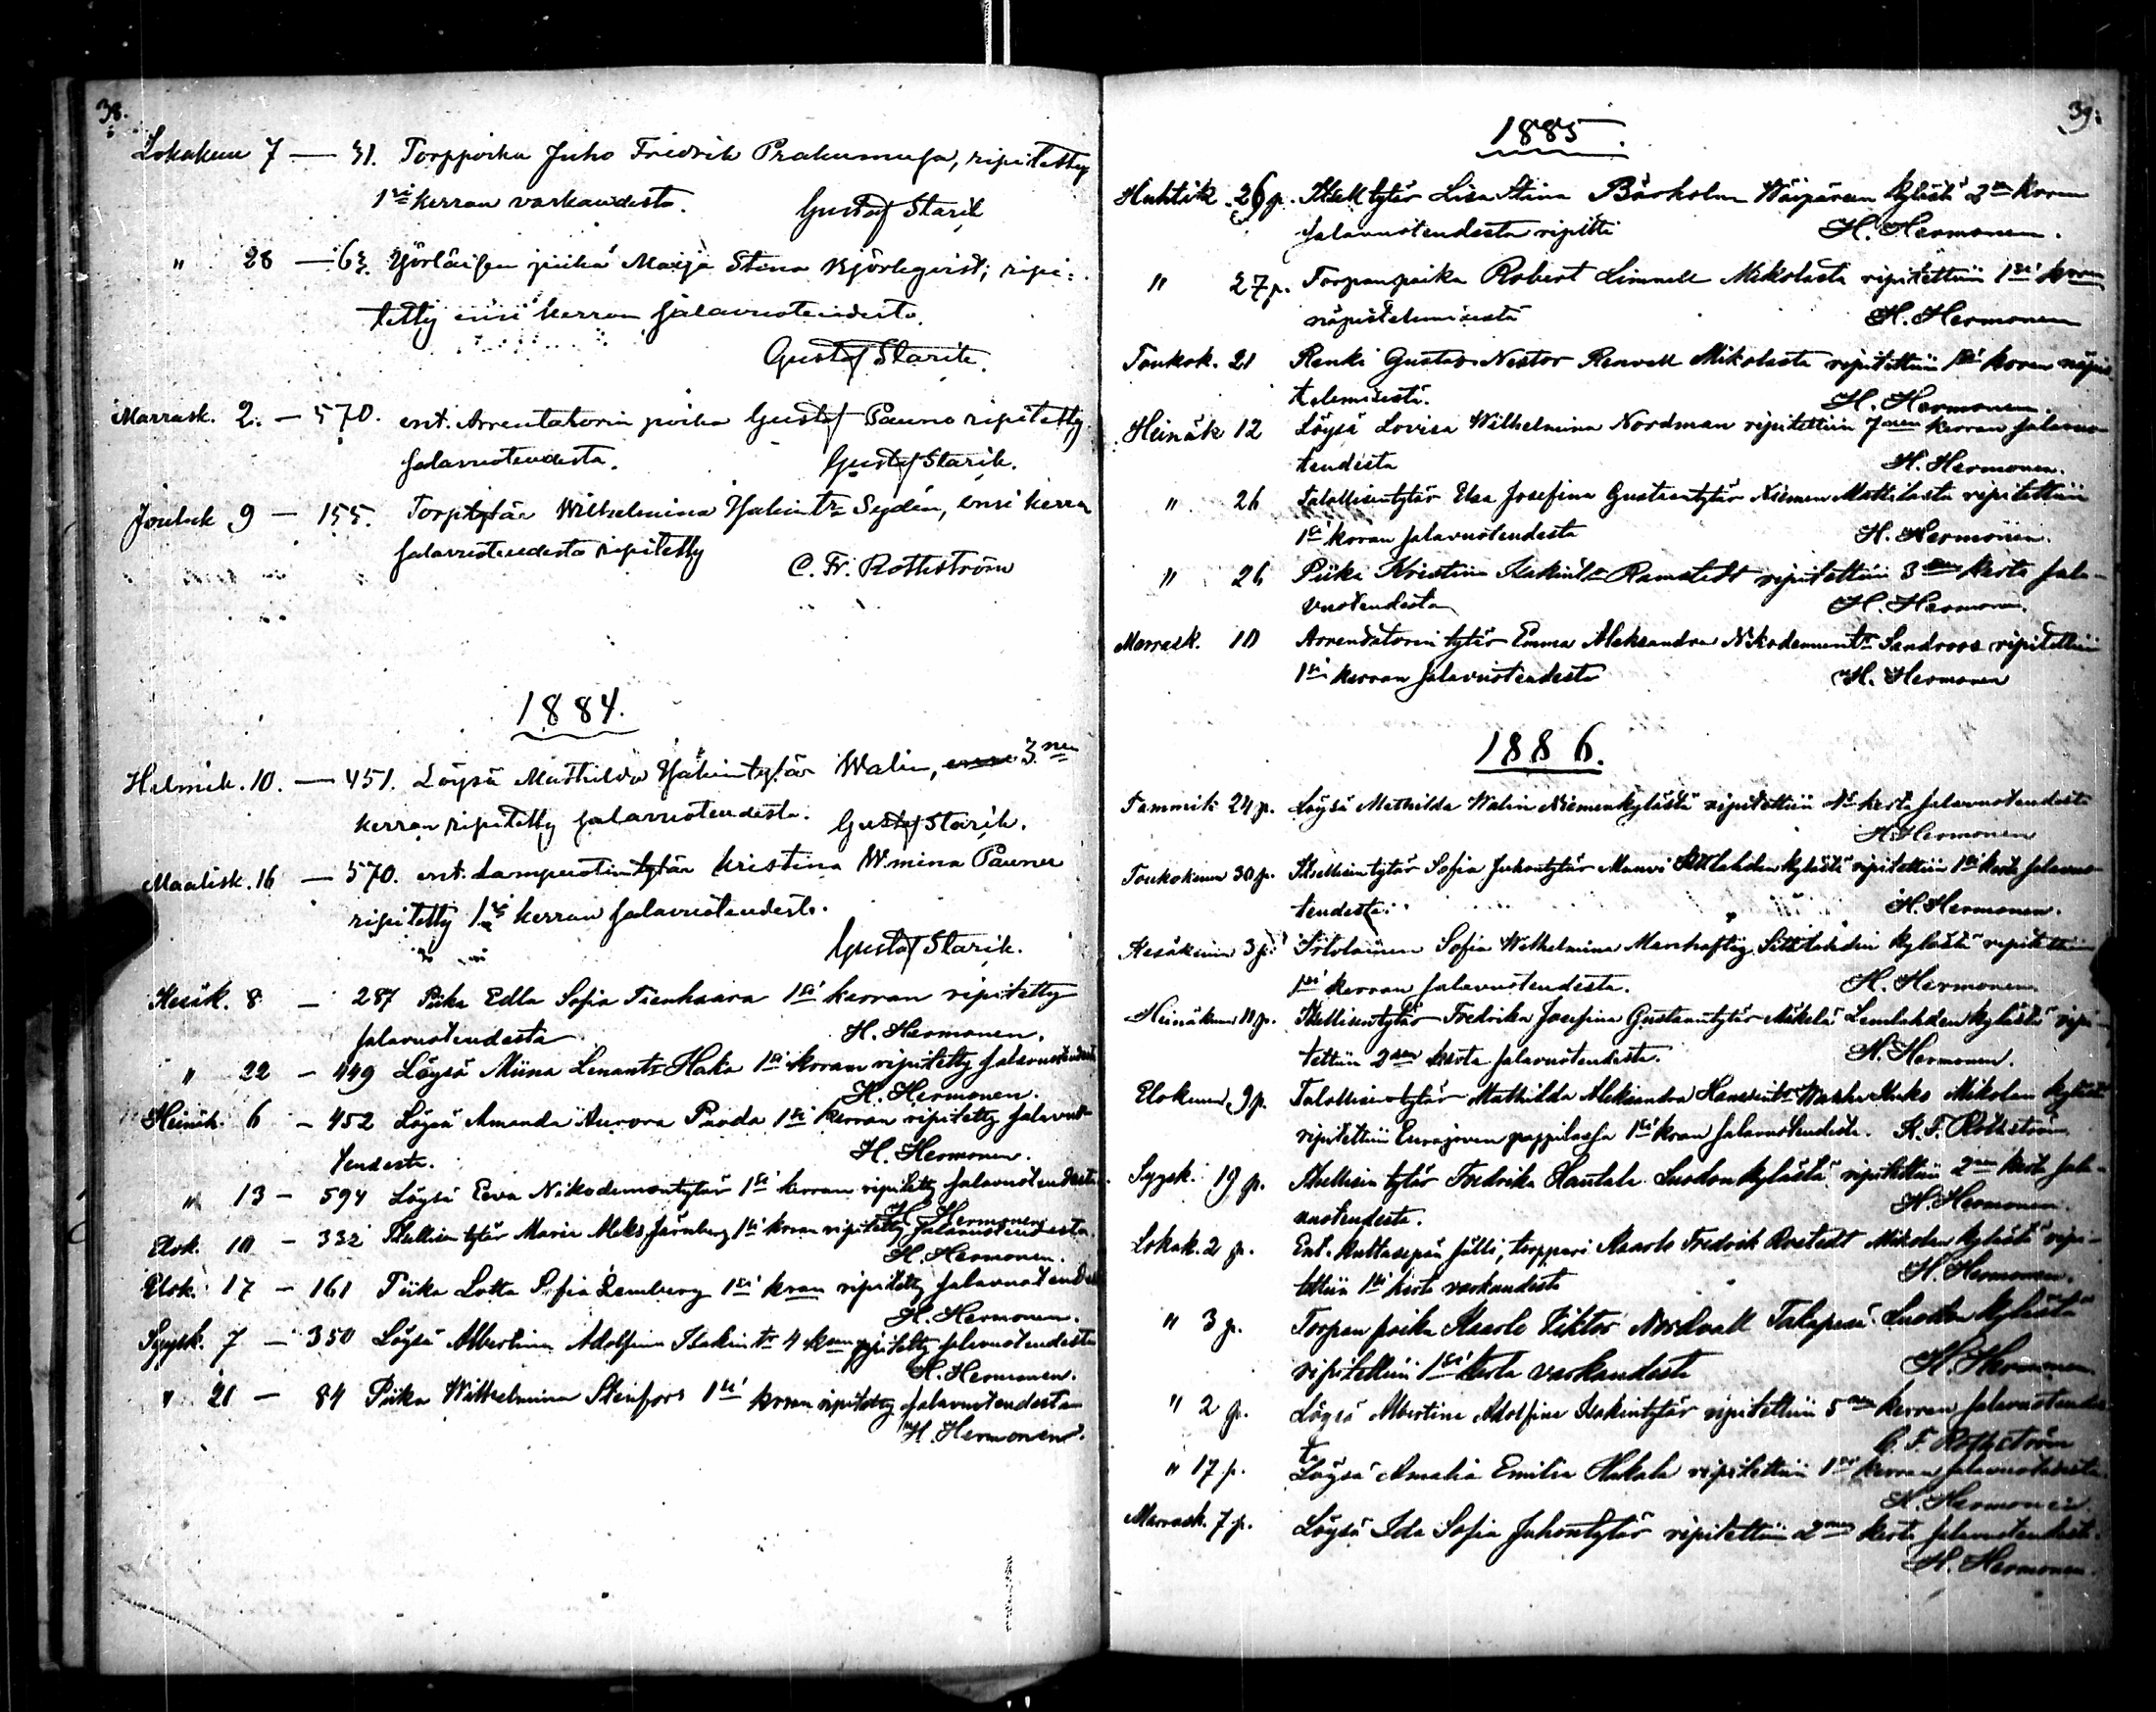 38.
Lokakuu 7 — 31. Torpporika Juho Fredrik Prakumusa, ripitetty
1si kerran varkaudesta. Gustaf Starik
" 28 — 63. Yörläisen piika Maija Stina Björkqvist; ripi-
tetty ensi kerran salavuoteudesta.
Gustaf Starik.
Marrask. 2. — 570. ent. Arrentatorin poika Gustaf Pauno ripitetty
salavuoteudesta. Gustaf Starik.
Jouluk 9 — 155. Torptytär Wilhelmina Isakintr Sydén, ensi kerra
salavuoteudesta ripitetty C. Fr. Rothström
1884.
Helmik. 10. — 451. Löysä Mathilda Isakintytär Walin, 3nen
kerran ripitetty salavuoteudesta. Gustaf Starik.
Maalisk. 16 — 570. ent. Lampuotintytär Kristina W.mina Pauner
ripitetty 1si kerran salavuoteudesta.
Gustaf Starik.
Kesäk. 8 — 287 Piika Edla Sofia Tienhaara 1si kerran ripitetty
salavuoteudesta H. Hermonen.
" 22 — 449 Löysä Miina Lenantr Haka 1si kerran ripitetty salavuoteudesta
H. Hermonen.
Heinäk. 6 — 452 Löysä Amanda Aurora Puoda 1si kerran ripitetty salavuo-
teudesta. H. Hermonen.
" 13 — 594 Löysä Eeva Nikodemontytär 1si kerran ripitetty salavuoteudesta
H. Hermonen
Elok. 10 — 332 Itsellisen tytär Maria Aleks. Järnberg 1si kerran ripitetty salavuoteudesta.
H. Hermonen.
Elok. 17 — 161 Piika Lotta Sofia Lemberg 1si kran ripitetty salavuoteudesta
H. Hermonen.
Syysk. 7 — 350 Löysä Albertina Adolfina Isakintr 4 kran ripitetty salavuoteudesta
H. Hermonen.
" 21 — 84 Piika Wilhelmina Stenfors 1si kerran ripitetty salavuoteudesta
H. Hermonen.
39.
1885.
Huhtik. 26 p. Itsell tytär Lisa Stina Bärholm Wäipären kylästä 2en kerran
salavuoteudesta ripitti H. Hermonen.
" 27 p. Torpanpoika Robert Linnell Mikolasta ripitettiin 1si kerran
näpistelemisestä H. Hermonen
Toukok. 21 Renki Gustav Nestor Renvall Mikolasta ripitettiin 1si kerran näpis-
telemisestä. H. Hermonen.
Heinäk 12 Löysä Lovisa Wilhelmina Nordman ripitettiin 7men kerran salavuo-
teudesta H. Hermonen.
" 26 Talollisentytär Elsa Josefina Gustaantytär Niemen Mattilasta ripitettiin
1si kerran salavuoteudesta H. Hermonen.
" 26 Piika Kristiina Isakintr Ramstedt ripitettiin 3nen kerta sala-
vuoteudesta H. Hermonen.
Marrask. 10 Arrendatorin tytär Emma Aleksandra Nikodemuntr Sandroos ripitettiin
1si kerran salavuoteudesta H. Hermonen
1886.
Tammik 24 p. Löysä Mathilda Walin Niemenkylästä ripitettiin 4s kerta salavuoteudesta
H. Hermonen
Toukokuu 30 p. Itsellisentytär Sofia Juhontytär Manvi kylästä ripitettiin 1si kerta salavuo-
teudesta. H. Hermonen.
Kesäkuu 3 p. Sofia Wilhelmina kylästä ripitettiin
1si kerran salavuoteudesta. H. Hermonen.
Heinäkuu 11 p. Itsellisentytär Fredrika Josefina Gustaantytär Mäkelä Lemlahden kylästä ripi-
tettiin 2sen kerta salavuoteudesta. H. Hermonen.
Elokuu 9 p. Talollisentytär Mathilda Aleksandra Mikolan kylästä
ripitettiin Eurajoen pappilassa 1si kran salavuoteudesta. K. F. Rothström
Syysk. 19 p. Itsellisen tytär Fredrika Hautala Luodon kylästä ripitettiin 2sen kerta sala-
vuoteudesta. H. Hermonen.
Lokak. 2 p. Ent. kultasepän sälli, torppari Kaarle Fredrik Rostedt Mikolan kylästä ripi-
tettiin 1si kerta varkaudesta H. Hermonen.
" 3 p. Torpan poika Kaarle Viktor Nordvall Luodon kylästä
ripitettiin 1si kerta varkaudesta H. Hermonen
" 2 p. Löysä Albertina Adolfina Isakintytär ripitettiin 5nen kerran salavuoteudes-
ta C. F. Rothström
" 17 p. Löysä Amalia Emilia Hakala ripitettiin 1si kerran salavuoteudesta.
H. Hermonen.
Marrask. 7 p. Löysä Ida Sofia Juhontytär ripitettiin 2sen kerta salavuoteudesta.
H. Hermonen.